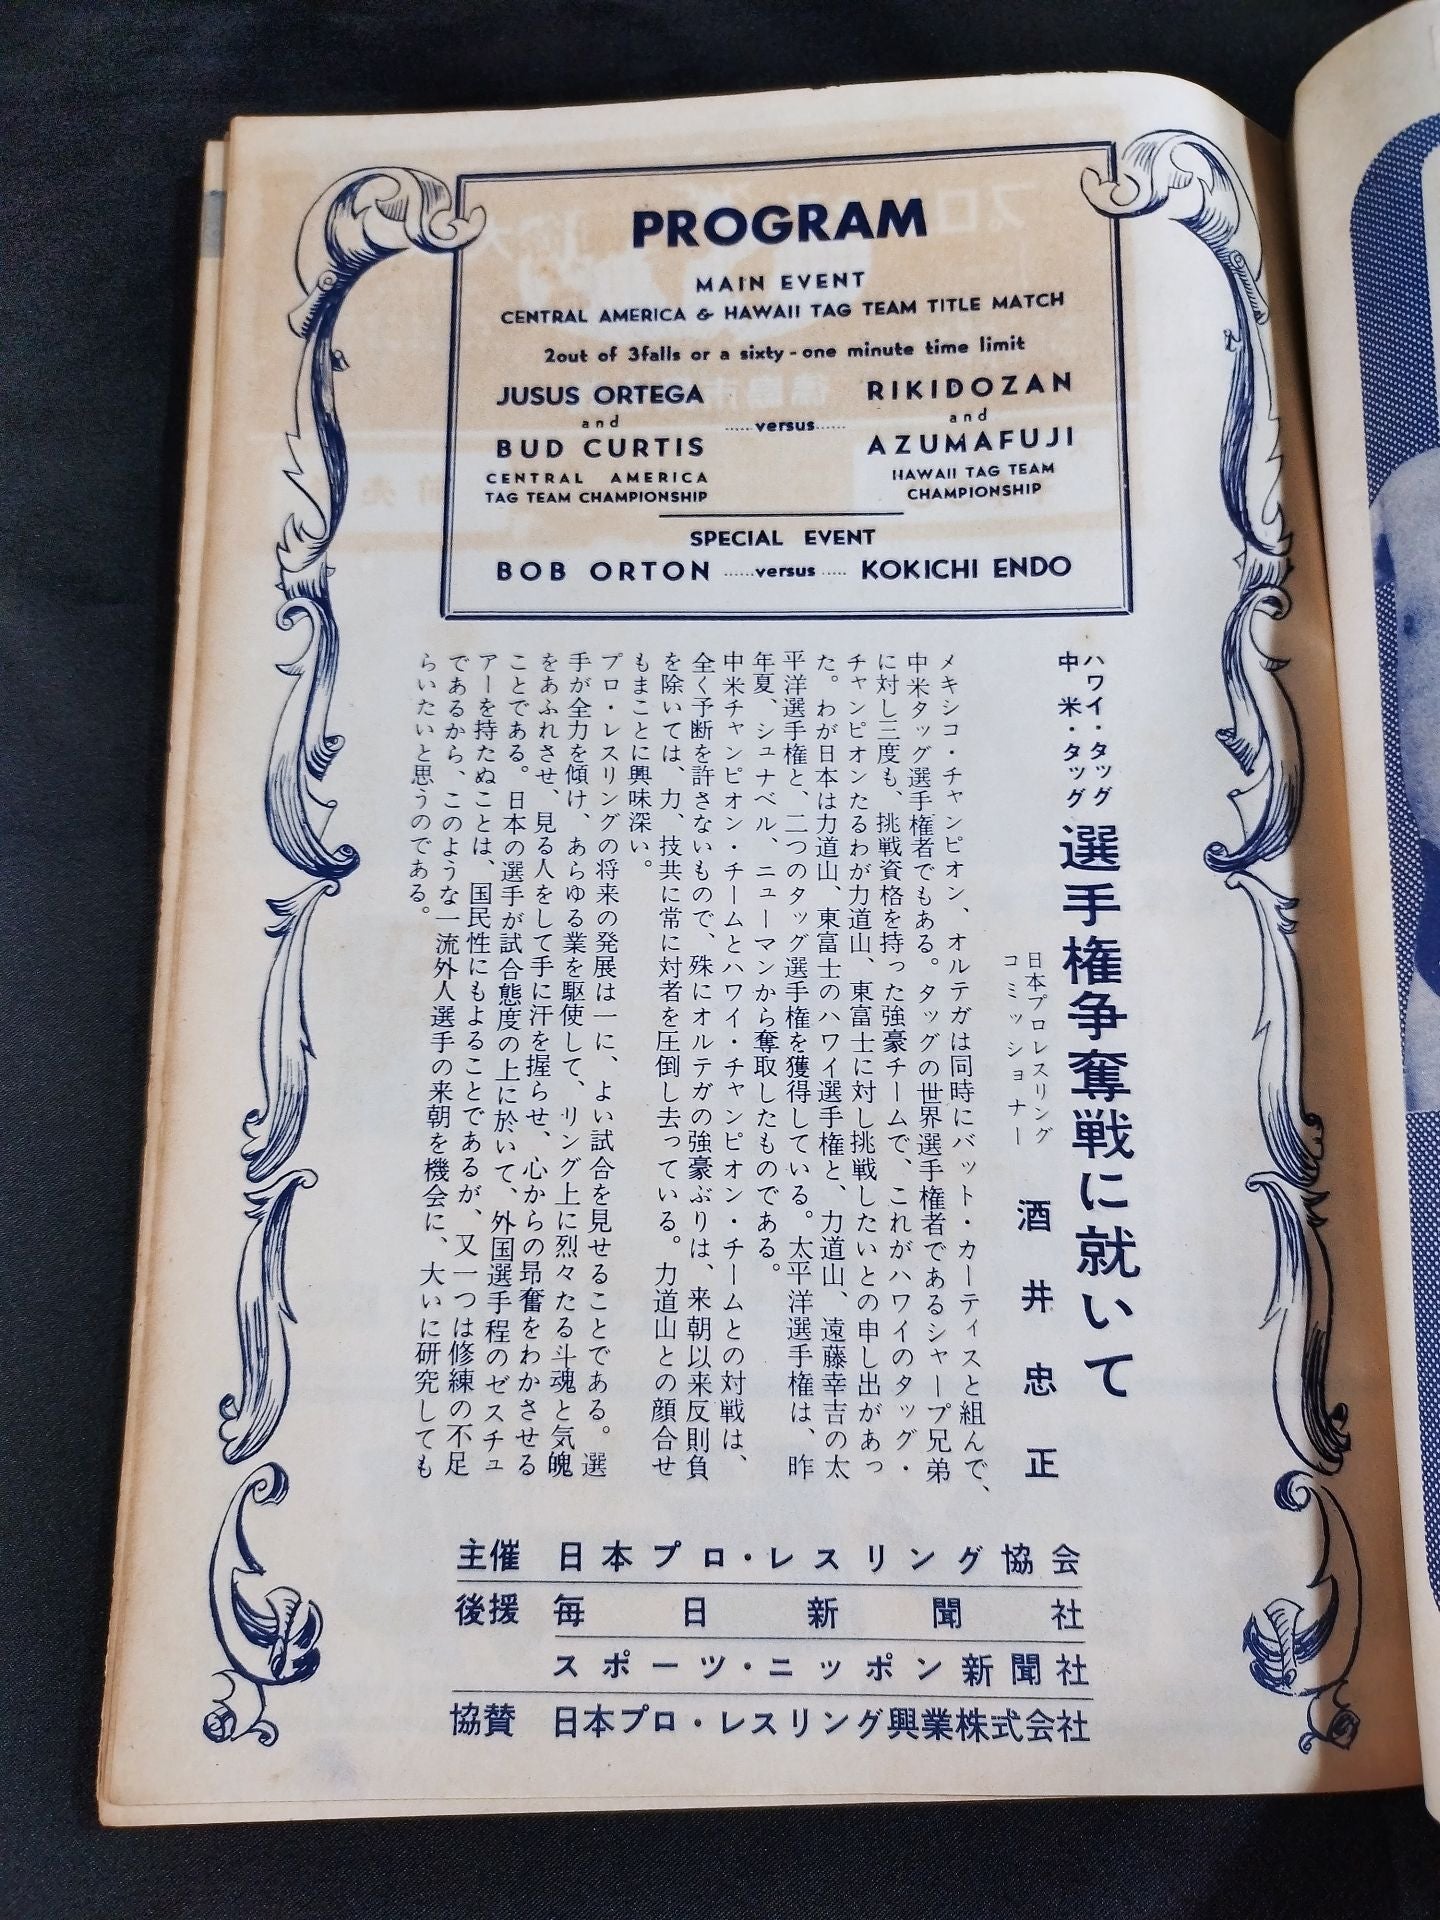 PROGRAM
MAIN EVENT
CENTRAL AMERICA & HAWAII TAG TEAM TITLE MATCH
2out of 3falls or a sixty-one minute time limit
JUSUS ORTEGA
and
BUD CURTIS
CENTRAL AMERICA
TAG TEAM CHAMPIONSHIP
......versus......
RIKIDOZAN
and
AZUMAFUJI
HAWAII TAG TEAM
CHAMPIONSHIP
SPECIAL EVENT
BOB ORTON ......versus ...... KOKICHI ENDO
ハワイ・タッグ
中米・タッグ
選手権争奪戦に就いて
日本プロレスリング
コミッショナー
酒井忠正
メキシコ・チャンピオン、オルテガは同時にバット・カーティスと組んで、
中米タッグ選手権者でもある。タッグの世界選手権者であるシャープ兄弟
に対し三度も、挑戦資格を持った強豪チームで、これがハワイのタッグ・
チャンピオンたるわが力道山、東富士に対し挑戦したいとの申し出があっ
た。わが日本は力道山、東富士のハワイ選手権と、力道山、遠藤幸吉の太
平洋選手権と、二つのタッグ選手権を獲得している。太平洋選手権は、昨
年夏、シュナベル、ニューマンから奪取したものである。
中米チャンピオン・チームとハワイ・チャンピオン・チームとの対戦は、
全く予断を許さないもので、殊にオルテガの強豪ぶりは、来朝以来反則負
を除いては、力、技共に常に対者を圧倒し去っている。力道山との顔合せ
もまことに興味深い。
プロ・レスリングの将来の発展は一に、よい試合を見せることである。選
手が全力を傾け、あらゆる業を駆使して、リング上に烈々たる斗魂と気魄
をあふれさせ、見る人をして手に汗を握らせ、心からの昂奮をわかさせる
ことである。日本の選手が試合態度の上に於いて、外国選手程のゼスチュ
アーを持たぬことは、国民性にもよることであるが、又一つは修練の不足
であるから、このような一流外人選手の来朝を機会に、大いに研究しても
らいたいと思うのである。
主催 日本プロ・レスリング協会
後援 毎日新聞社
スポーツ・ニッポン新聞社
協賛 日本プロ・レスリング興業株式会社